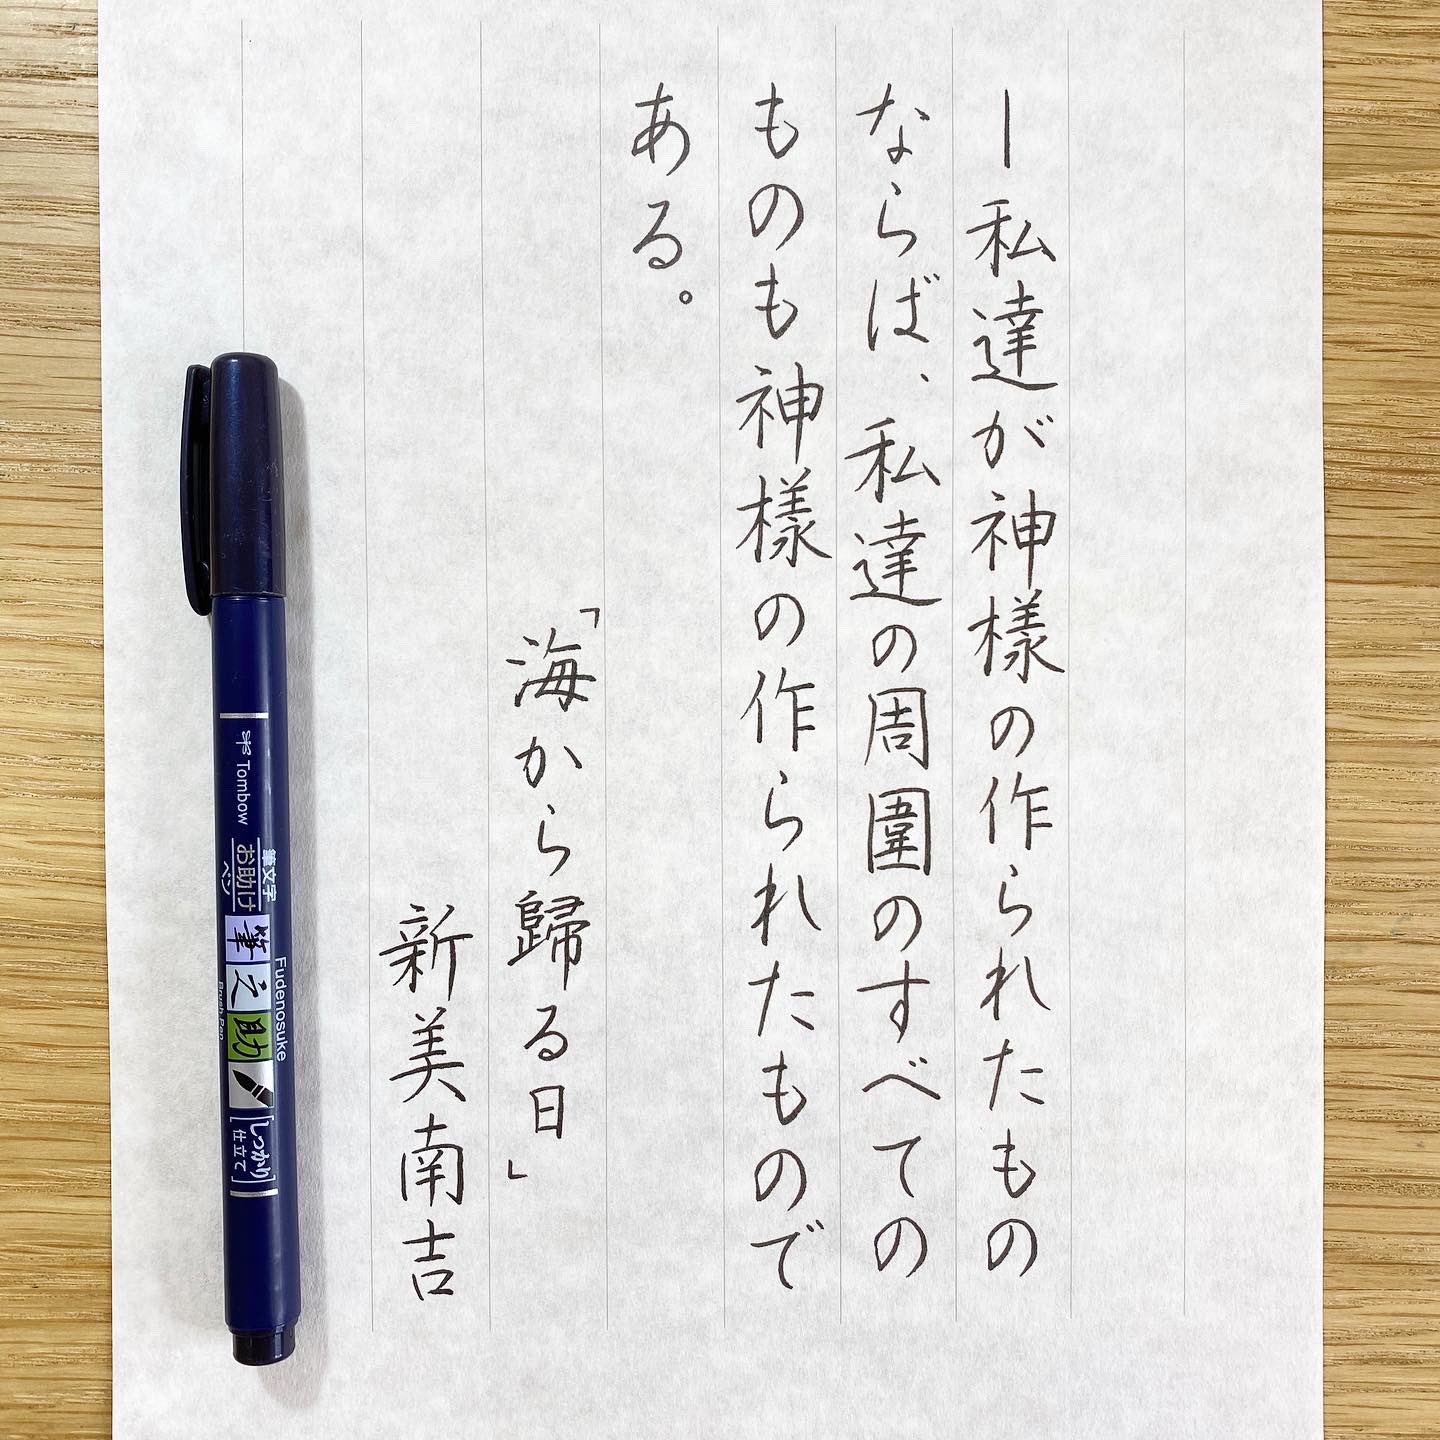 ―私達が神様の作られたもの
ならば、私達の周圍のすべての
ものも神様の作られたもので
ある。
「海から歸る日」
新美南吉
Tombow
筆文字
お助け
ペン
筆之助
Fudenosuke
Brush Pen
[しっかり
仕立て]